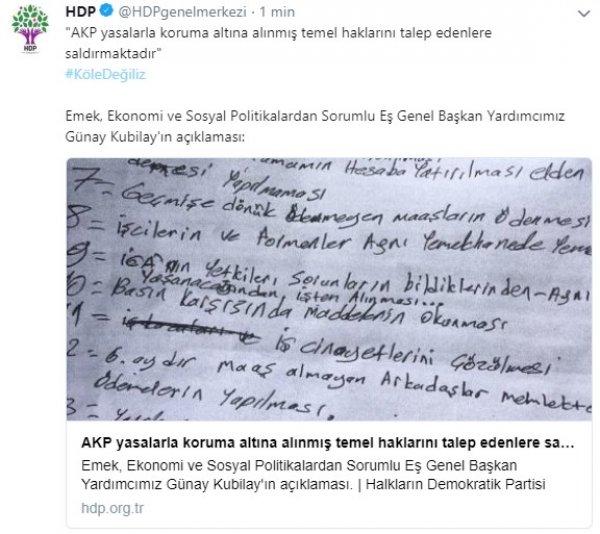 HDP @HDPgenelmerkezi · 1 min
"AKP yasalarla koruma altına alınmış temel haklarını talep edenlere
saldırmaktadır"
#KöleDeğiliz
Emek, Ekonomi ve Sosyal Politikalardan Sorumlu Eş Genel Başkan Yardımcımız
Günay Kubilay'ın açıklaması:
Hesaba Yatırılması elden
Yapılmaması
7= Geçmişe dönük Ödenmeyen maaşların Ödenmesi
8= işcilerin ve Formenler Aynı Yemekhanede
9= Yetkileri Sorunların bildiklerinden - Aynı
Yaşanacağından işten Alınması...
0= Basın karşısında maddelerin Okunması
1= iş cinayetlerini Çözülmesi
2= 6. aydır maaş almayan Arkadaşlar
Ödemelerin Yapılması.
3=
AKP yasalarla koruma altına alınmış temel haklarını talep edenlere sa...
Emek, Ekonomi ve Sosyal Politikalardan Sorumlu Eş Genel Başkan
Yardımcımız Günay Kubilay'ın açıklaması. | Halkların Demokratik Partisi
hdp.org.tr